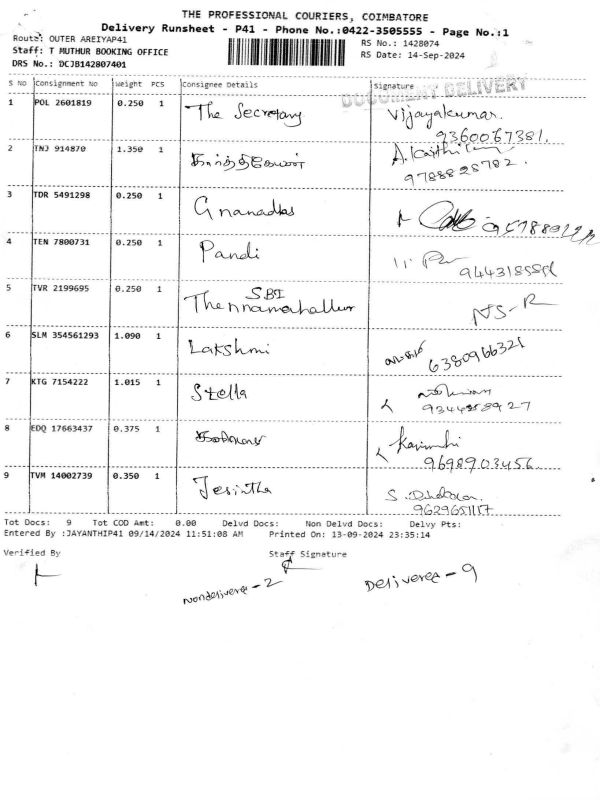 THE PROFESSIONAL COURIERS, COIMBATORE
Delivery Runsheet - P41 - Phone No.:0422-3505555 - Page No.:1
Route: OUTER AREIYAP41
RS No.: 1428074
Staff: T MUTHUR BOOKING OFFICE
RS Date: 14-Sep-2024
DRS No.: DCJB142807401
S No Consignment No Weight PCS Consignee Details Signature
DOCUMENT DELIVERY
1 POL 2601819 0.250 1 The Secretary Vijayakumar.
9360067381.
2 TNJ 914870 1.350 1 கார்த்திகேயன்
9788828782.
3 TDR 5491298 0.250 1 Gnanadas
4 TEN 7800731 0.250 1 Pandi
5 TVR 2199695 0.250 1 SBI NS-R
6 SLM 354561293 1.090 1 Lakshmi
6380966321
7 KTG 7154222 1.015 1 Stella
8 EDQ 17663437 0.375 1
9698903456.
9 TVM 14002739 0.350 1 Jesintha
Tot Docs: 9 Tot COD Amt: 0.00 Delvd Docs: Non Delvd Docs: Delvy Pts:
Entered By :JAYANTHIP41 09/14/2024 11:51:08 AM Printed On: 13-09-2024 23:35:14
Verified By Staff Signature
Nondeliveree - 2 Deliveree - 9